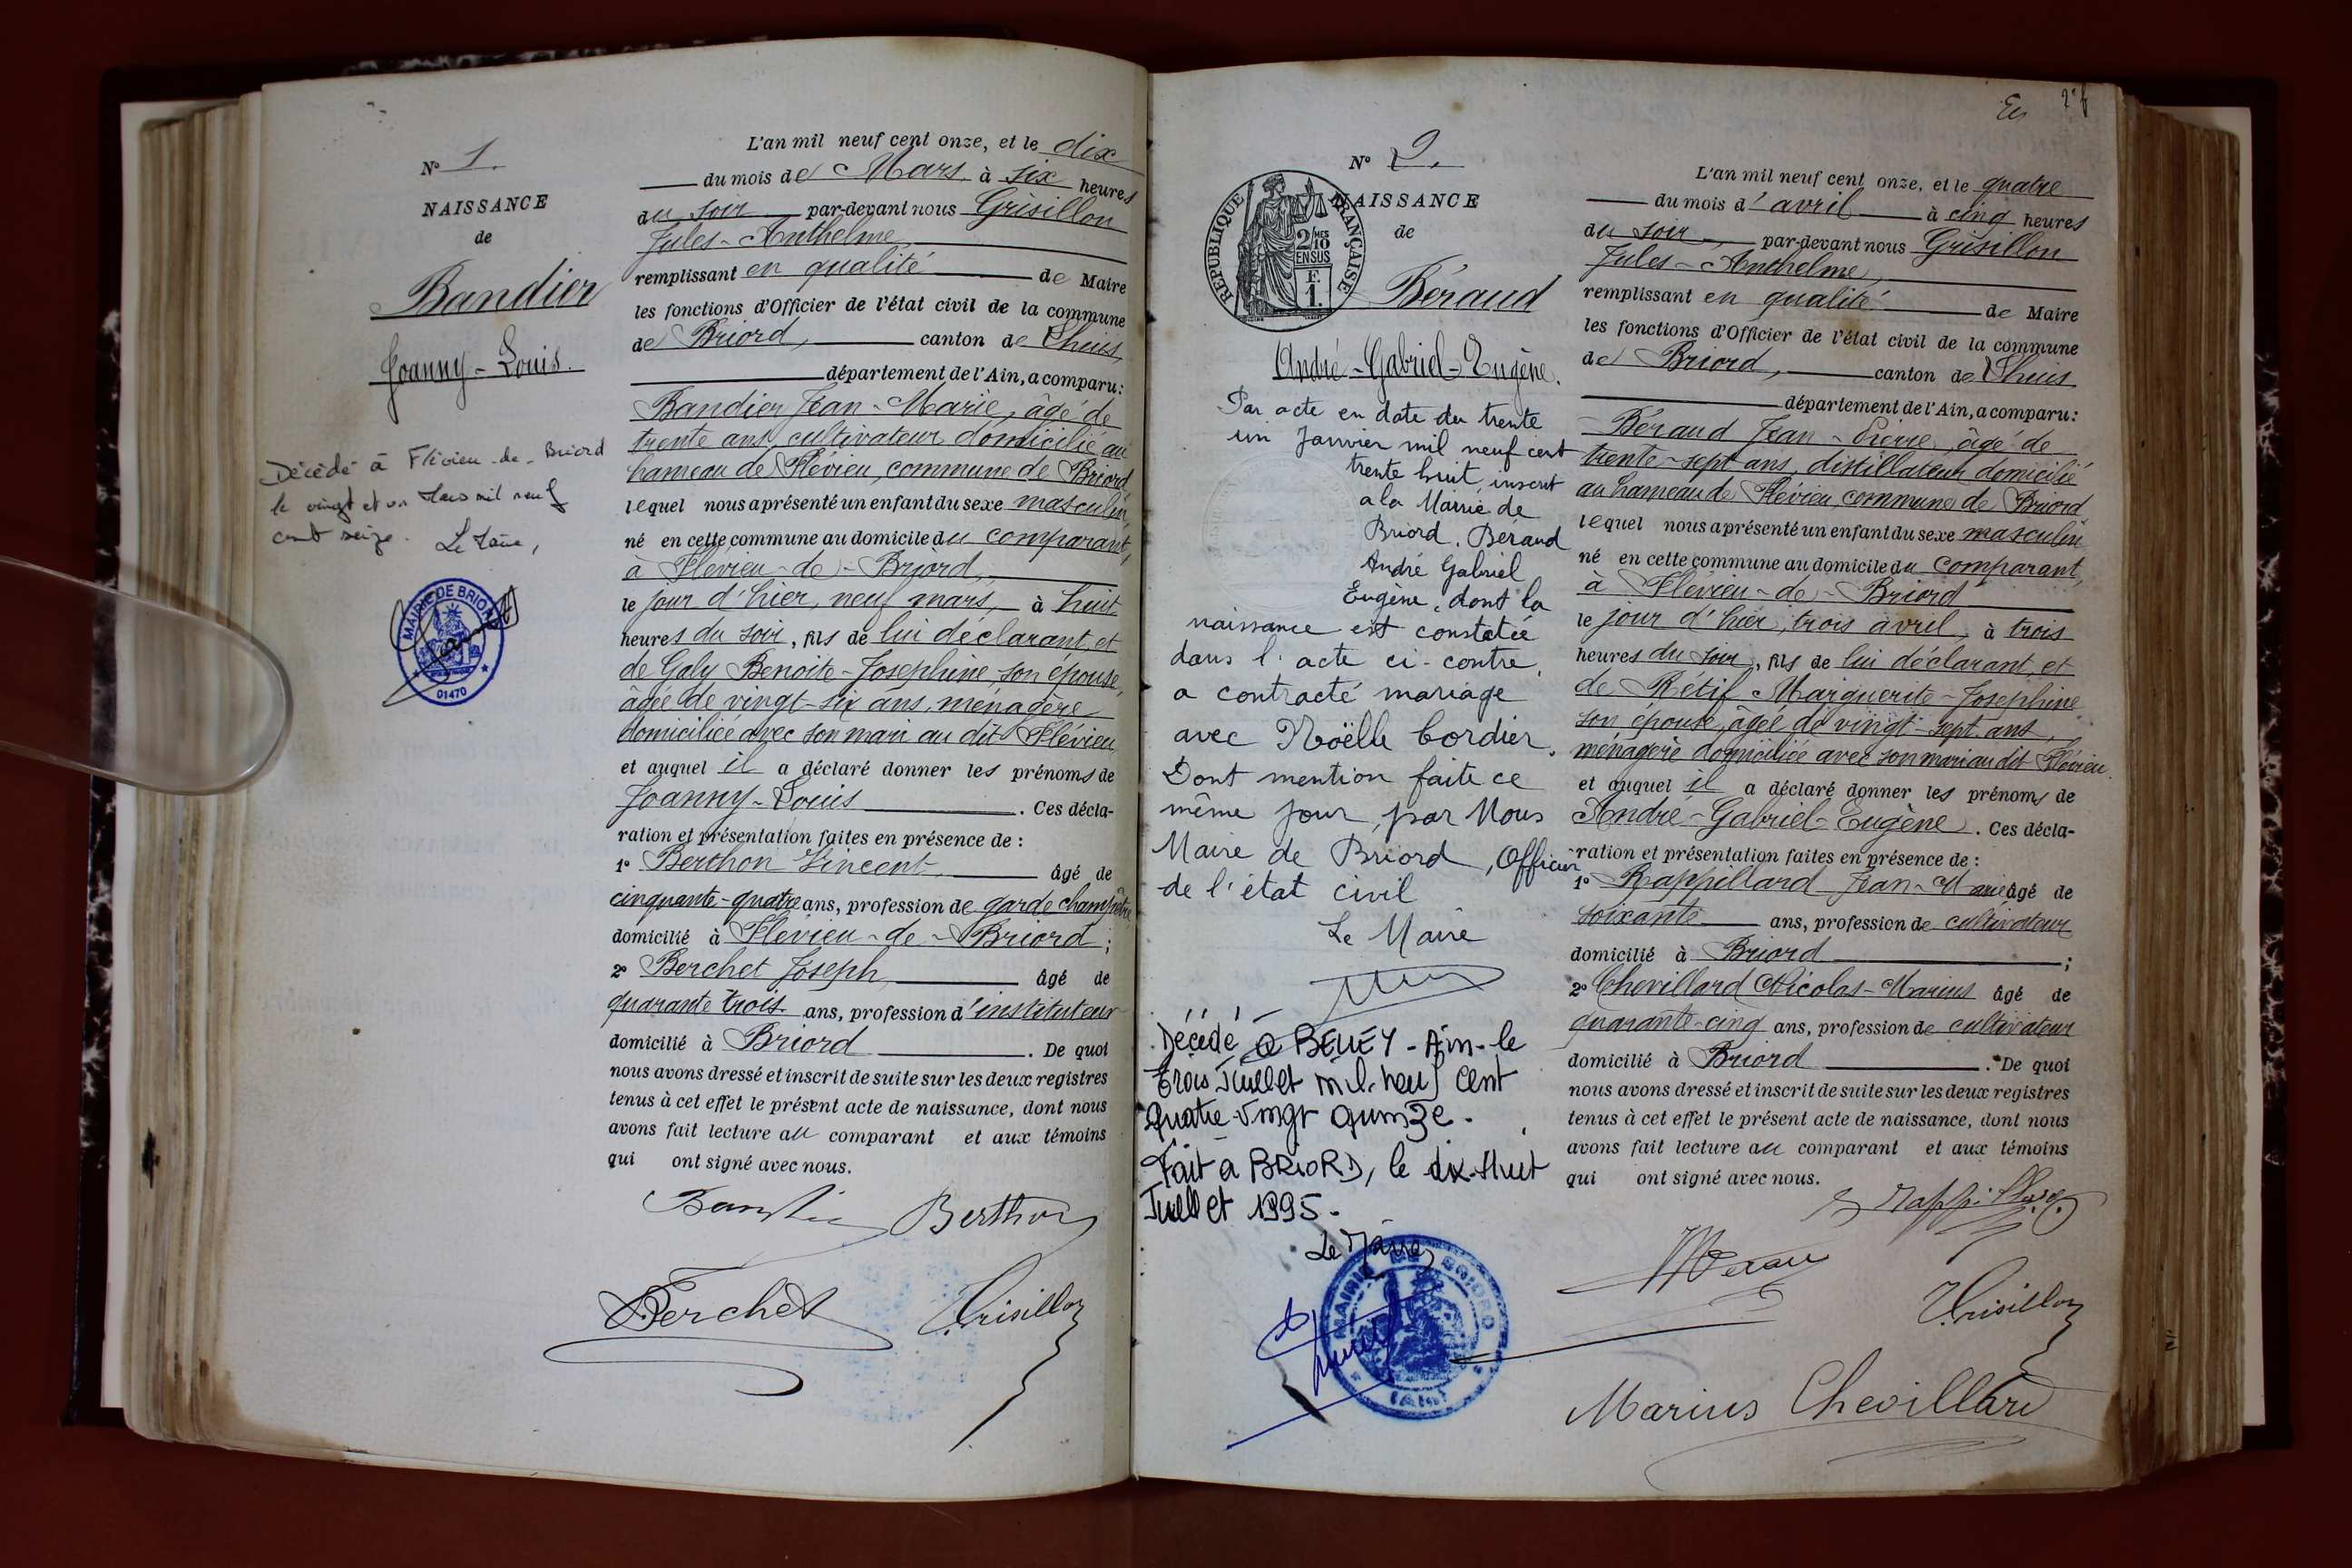 N° 1.
NAISSANCE
de
Bandier
Joanny-Louis.
Décédé à Flévieu-de-Briord
le vingt et un Mars mil neuf
cent seize. Le Maire,
MAIRIE DE BRIORD
01470
L'an mil neuf cent onze, et le dix
du mois de Mars, à six heures
du soir par-devant nous Grisillon
Jules-Anthelme
remplissant en qualité de Maire
les fonctions d'Officier de l'état civil de la commune
de Briord, canton de Lhuis,
département de l'Ain, a comparu:
Bandier Jean-Marie, âgé de
trente ans, cultivateur domicilié au
hameau de Flévieu, commune de Briord
lequel nous a présenté un enfant du sexe masculin,
né en cette commune au domicile du comparant,
à Flévieu-de-Briord,
le jour d'hier, neuf mars, à huit
heures du soir, fils de lui déclarant et
de Galy Benoite-Josephine, son épouse,
âgée de vingt-six ans, ménagère
domiciliée avec son mari au dit Flévieu
et auquel il a déclaré donner les prénoms de
Joanny-Louis. Ces décla-
ration et présentation faites en présence de :
1° Berthon Vincent âgé de
cinquante-quatre ans, profession de garde champêtre
domicilié à Flévieu-de-Briord;
2° Berchet Joseph, âgé de
quarante trois ans, profession d'instituteur
domicilié à Briord. De quoi
nous avons dressé et inscrit de suite sur les deux registres
tenus à cet effet le présent acte de naissance, dont nous
avons fait lecture au comparant et aux témoins
qui ont signé avec nous.
Bandier Berthon
Berchet Grisillon
2° f
N° 2.
NAISSANCE
de
RÉPUBLIQUE FRANÇAISE
2/10 MES
EN SUS
F.
1.
Béraud
André-Gabriel-Eugène.
Par acte en date du trente
un Janvier mil neuf cent
trente huit, inscrit
a la Mairie de
Briord. Béraud
André Gabriel
Eugène, dont la
naissance est constatée
dans l'acte ci-contre,
a contracté mariage
avec Noëlle Cordier.
Dont mention faite ce
même jour, par Nous
Maire de Briord, Officier
de l'état civil
Le Maire
Décédé à BELLEY - Ain - le
trois Juillet mil neuf cent
Quatre-Vingt quinze.
Fait à BRIORD, le dix-Huit
Juillet 1995.
Le Maire
MAIRIE DE BRIORD
(Ain)
L'an mil neuf cent onze, et le quatre
du mois d'avril à cinq heures
du soir, par-devant nous Grisillon
Jules-Anthelme,
remplissant en qualité de Maire
les fonctions d'Officier de l'état civil de la commune
de Briord, canton de Lhuis
département de l'Ain, a comparu:
Béraud Jean-Pierre, âgé de
trente-sept ans, distillateur domicilié
au hameau de Flévieu, commune de Briord
lequel nous a présenté un enfant du sexe masculin
né en cette commune au domicile du comparant,
à Flévieu-de-Briord
le jour d'hier, trois avril, à trois
heures du soir, fils de lui déclarant, et
de Rétif Marguerite-Josephine
son épouse, âgée de vingt-sept ans,
ménagère domiciliée avec son mari au dit Flévieu.
et auquel il a déclaré donner les prénoms de
André-Gabriel-Eugène. Ces décla-
ration et présentation faites en présence de :
1° Rappillard Jean-Marie âgé de
soixante ans, profession de cultivateur
domicilié à Briord;
2° Chevillard Nicolas-Marius âgé de
quarante-cinq ans, profession de cultivateur
domicilié à Briord. De quoi
nous avons dressé et inscrit de suite sur les deux registres
tenus à cet effet le présent acte de naissance, dont nous
avons fait lecture au comparant et aux témoins
qui ont signé avec nous.
Rappillard
Grisillon
Marius Chevillard